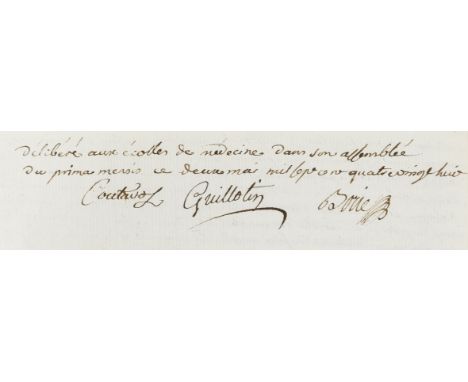 délibéré aux écolles de medecine dans son assemblée
du prima mensis ce deux mai mil sept cent quatre vingt huit
Guillotin Borie